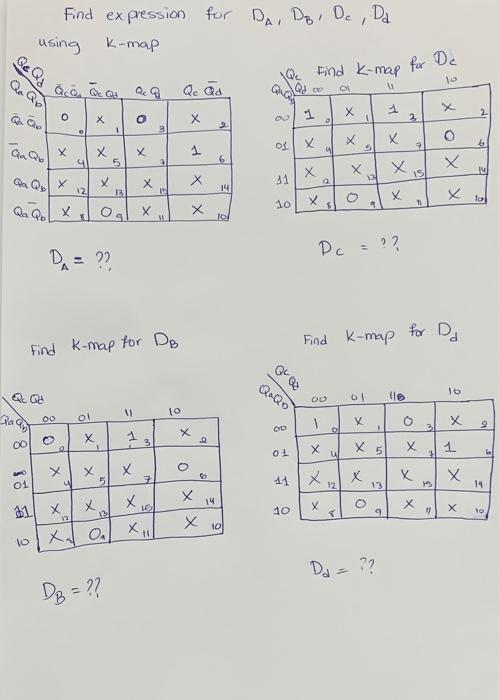 Find expression for DA, DB, Dc, Dd
using K-map
Qc Qd
Qa Qb Q̄c Q̄d Q̄c Qd Qc Qd Qc Q̄d
Q̄a Q̄b 0 0 X 1 0 3 X 2
Q̄a Qb X 4 X 5 X 7 1 6
Qa Qb X 12 X 13 X 15 X 14
Qa Q̄b X 8 0 9 X 11 X 10
DA = ??
Find K-map for Dc
Qc Qd
QaQb 00 01 11 10
00 1 0 X 1 1 3 X 2
01 X 4 X 5 X 7 0 6
11 X 12 X 13 X 15 X 14
10 X 8 0 9 X 11 X 10
Dc = ??
Find K-map for DB
Qc Qd
QaQb 00 01 11 10
00 0 0 X 1 1 3 X 2
01 X 4 X 5 X 7 0 6
11 X 12 X 13 X 15 X 14
10 X 8 0 9 X 11 X 10
DB = ??
Find K-map for Dd
Qc Qd
QaQb 00 01 11 10
00 1 0 X 1 0 3 X 2
01 X 4 X 5 X 7 1 6
11 X 12 X 13 X 15 X 14
10 X 8 0 9 X 11 X 10
Dd = ??